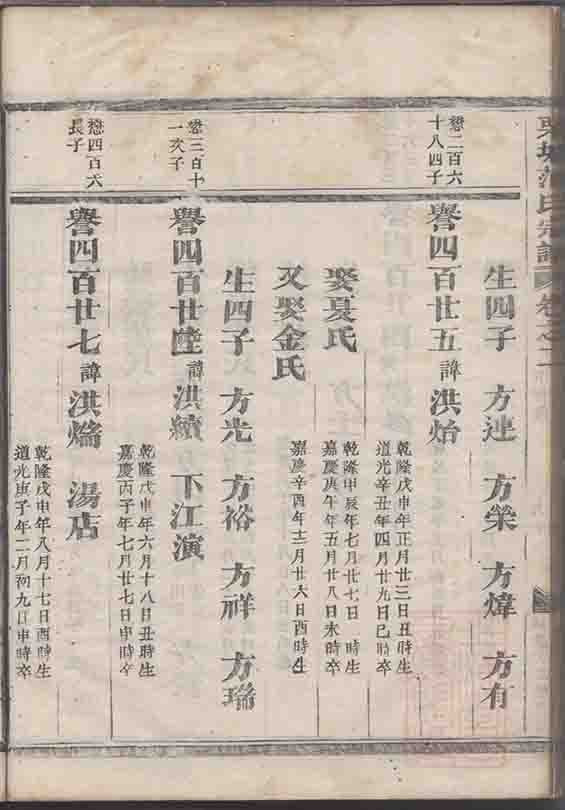 東城范氏宗譜 卷之二
生四子 方連 方榮 方煒 方有
懋二百六
十八四子
譽四百廿五 諱洪炲
乾隆戊申年正月廿三日丑時生
道光辛丑年四月廿九日巳時卒
娶夏氏
乾隆甲辰年七月廿七日 時生
嘉慶庚午年五月廿八日未時卒
又娶金氏
嘉慶辛酉年十二月廿六日酉時生
生四子 方光 方裕 方祥 方瑞
懋三百十
一次子
譽四百廿陸 諱洪續 下江演
乾隆戊申年六月十八日丑時生
嘉慶丙子年七月廿七日申時卒
懋四百六
長子
譽四百廿七 諱洪焴 湯店
乾隆戊申年八月十七日酉時生
道光庚子年二月初九日申時卒